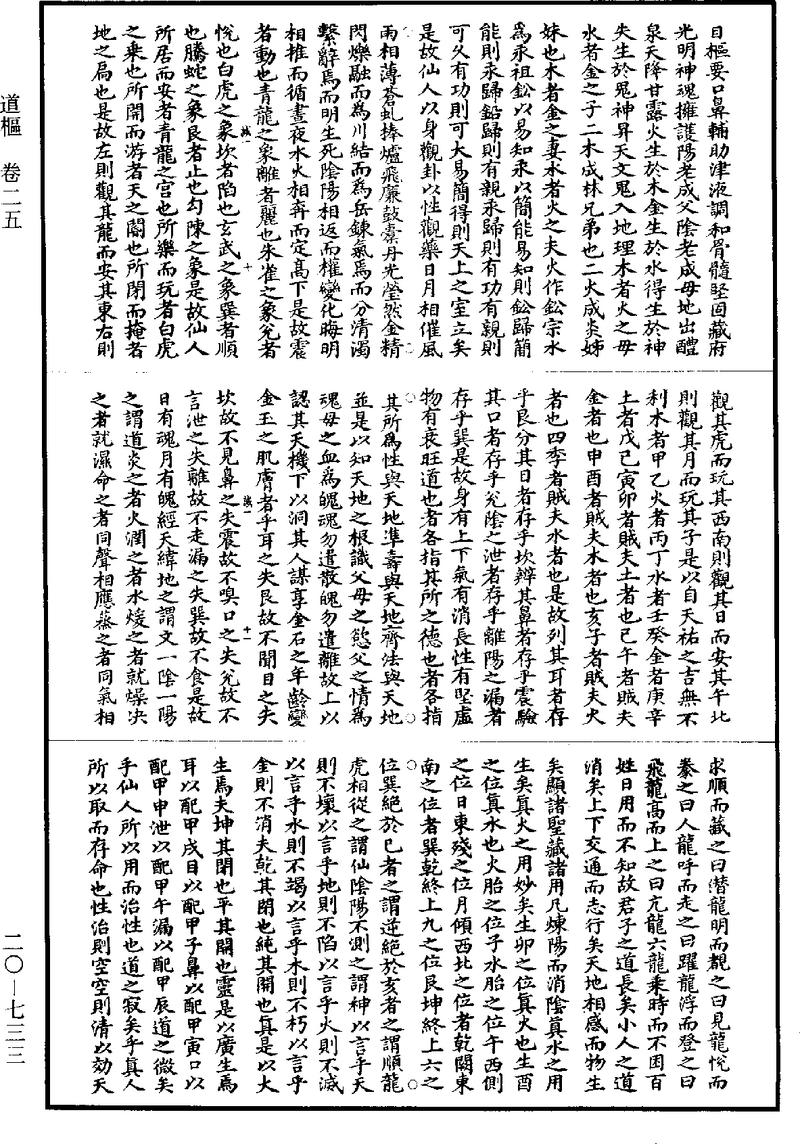 道樞　卷二五
二〇—七三三
日樞要口鼻輔助津液調和骨髓堅固藏府
光明神魂擁護陽老成父陰老成母地出醴
泉天降甘露火生於木金生於水得生於神
失生於鬼神昇天文鬼入地理木者火之母
水者金之子二木成林兄弟也二火成炎姊
妹也木者金之妻水者火之夫火作鈆宗水
爲汞祖鈆以易知汞以簡能易知則鈆歸簡
能則汞歸鈆歸則有親汞歸則有功有親則
可久有功則可大易簡得則天上之室立矣
是故仙人以身觀卦以性觀藥日月相催風
雨相薄蒼虬捧爐飛廉鼓橐丹光瑩然金精
閃爍融而為川結而為岳鍊氣焉而分清濁
繫辭焉而明生死陰陽相返而權變化晦明
相推而循晝夜水火相奔而定高下是故震
者動也青龍之象離者麗也朱雀之象兊者
悅也白虎之象坎者陷也玄武之象巽者順
也騰蛇之象艮者止也勾陳之象是故仙人
所居而安者青龍之宫也所樂而玩者白虎
之乗也所開而游者天之閣也所閉而掩者
地之局也是故左則觀其龍而安其東右則
誠一
十
觀其虎而玩其西南則觀其日而安其午北
則觀其月而玩其子是以自天祐之吉無不
利木者甲乙火者丙丁水者壬癸金者庚辛
土者戊己寅卯者賊夫土者也巳午者賊夫
金者也申酉者賊夫木者也亥子者賊夫火
者也四季者賊夫水者也是故列其耳者存
乎艮分其目者存乎坎辨其鼻者存乎震驗
其口者存乎兊陰之泄者存乎離陽之漏者
存乎巽是故身有上下氣有消長性有堅虛
物有衰旺道也者各指其所之德也者各指
其所為性與天地準壽與天地齊法與天地
並是以知天地之根識父母之慾父之情為
魂母之血爲魄魂勿遣散魄勿遣離故上以
認其天機下以洞其人謀享金石之年齡變
金玉之肌膚者乎耳之失艮故不聞目之失
坎故不見鼻之失震故不嗅口之失兊故不
言泄之失離故不走漏之失巽故不食是故
日有魂月有魄經天緯地之謂文一陰一陽
之謂道炎之者火潤之者水煖之者就燥決
之者就濕命之者同聲相應蒸之者同氣相
誠一
十一
求順而藏之曰潛龍明而覩之曰見龍悅而
豢之曰人龍呼而走之曰躍龍浮而登之曰
飛龍高而上之曰亢龍六龍乘時而不困百
姓日用而不知故君子之道長矣小人之道
消矣上下交通而志行矣天地相感而物生
矣顯諸聖藏諸用凡煉陽而消陰真水之用
生矣真火之用妙矣生卯之位真火也生酉
之位真水也火胎之位子水胎之位午西側
之位日東殘之位月傾西北之位者乾闕東
南之位者巽乾終上九之位艮坤終上六之
位巽絕於巳者之謂逆絕於亥者之謂順龍
虎相從之謂仙陰陽不測之謂神以言乎天
則不壞以言乎地則不陷以言乎火則不滅
以言乎水則不竭以言乎木則不朽以言乎
金則不消夫乾其閉也純其開也真是以大
生焉夫坤其閉也平其闢也靈是以廣生焉
耳以配甲戌目以配甲子鼻以配甲寅口以
配甲申泄以配甲午漏以配甲辰道之微矣
乎仙人所以用而治性也道之寂矣乎真人
所以取而存命也性治則空空則清以効天